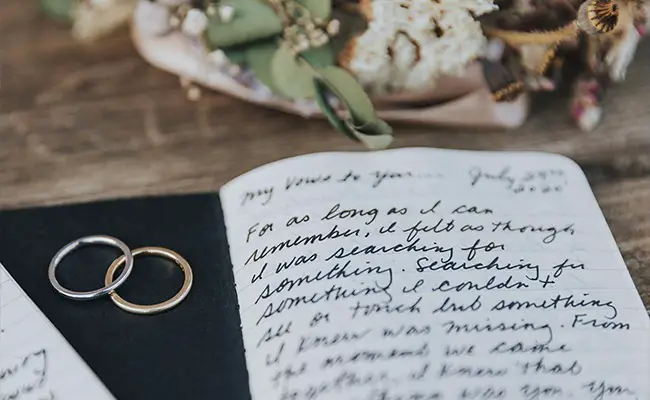 my vows to you.... July 29th,
2020
For as long as I can
remember, it felt as though
I was searching for
something. Searching for
something I couldn't
see or touch but something
I knew was missing. From
the moment we came
together, I knew that
was you. You